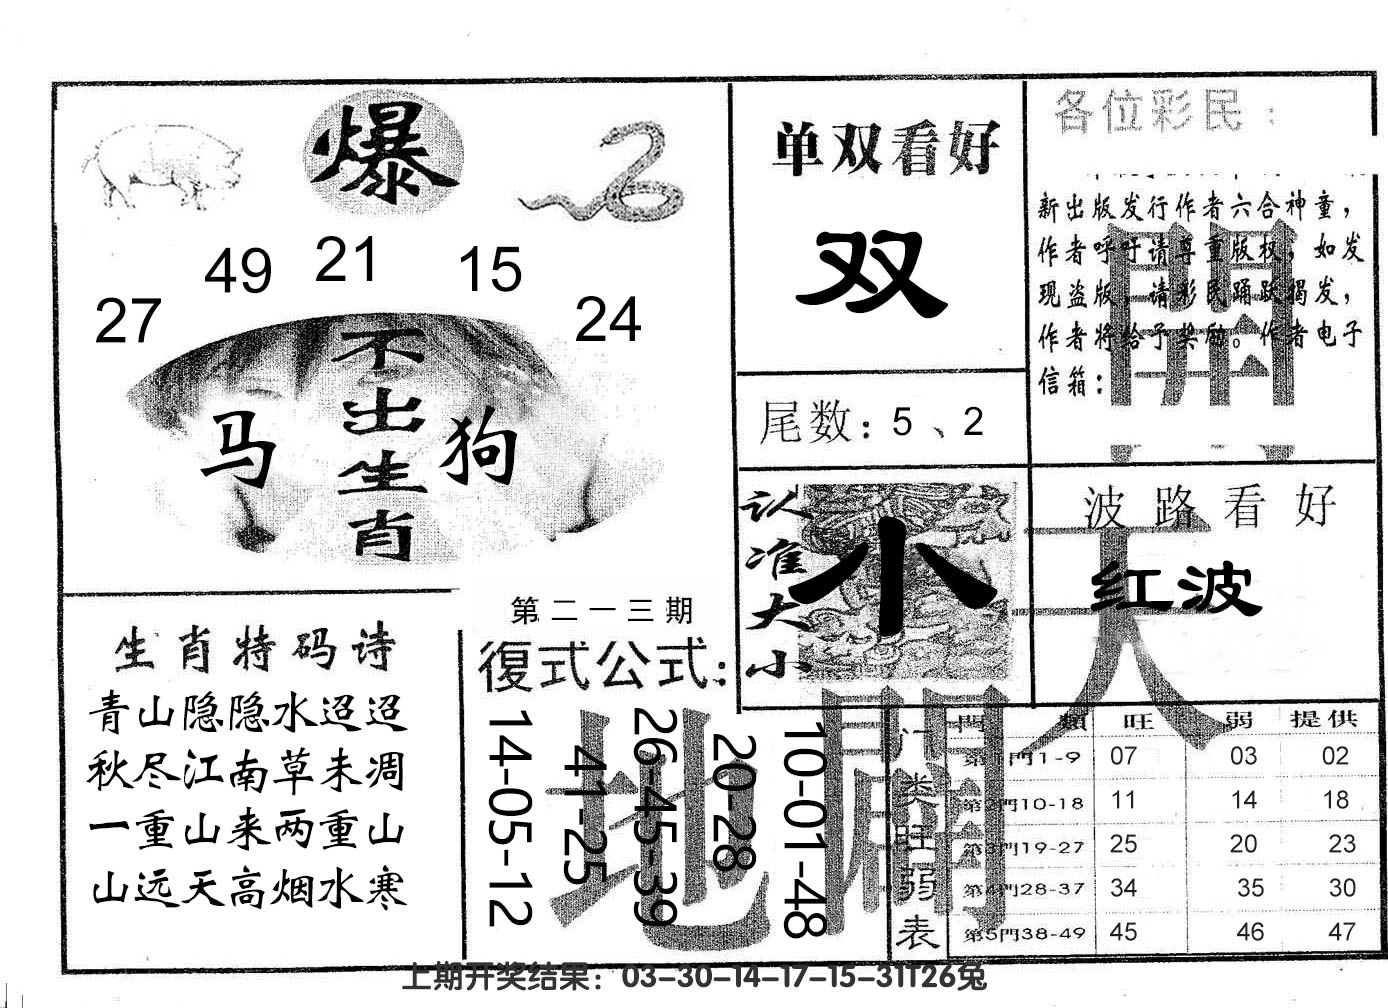 爆
49 21 15
27 24
不出生肖
马 狗
单双看好
双
尾数：5、2
各位彩民：
新出版发行作者六合神童，
作者呼吁请尊重版权，如发
现盗版，请彩民踊跃揭发，
作者将给予奖励。作者电子
信箱：
認准大小
小
波路看好
红波
天
地
開
生肖特码诗
青山隐隐水迢迢
秋尽江南草未凋
一重山来两重山
山远天高烟水寒
第二一三期
復式公式：
14-05-12
41-25
26-45-39
20-28
10-01-48
门类旺弱表
門類 旺 弱 提供
第1門1-9 07 03 02
第2門10-18 11 14 18
第3門19-27 25 20 23
第4門28-37 34 35 30
第5門38-49 45 46 47
上期开奖结果：03-30-14-17-15-31T26兔